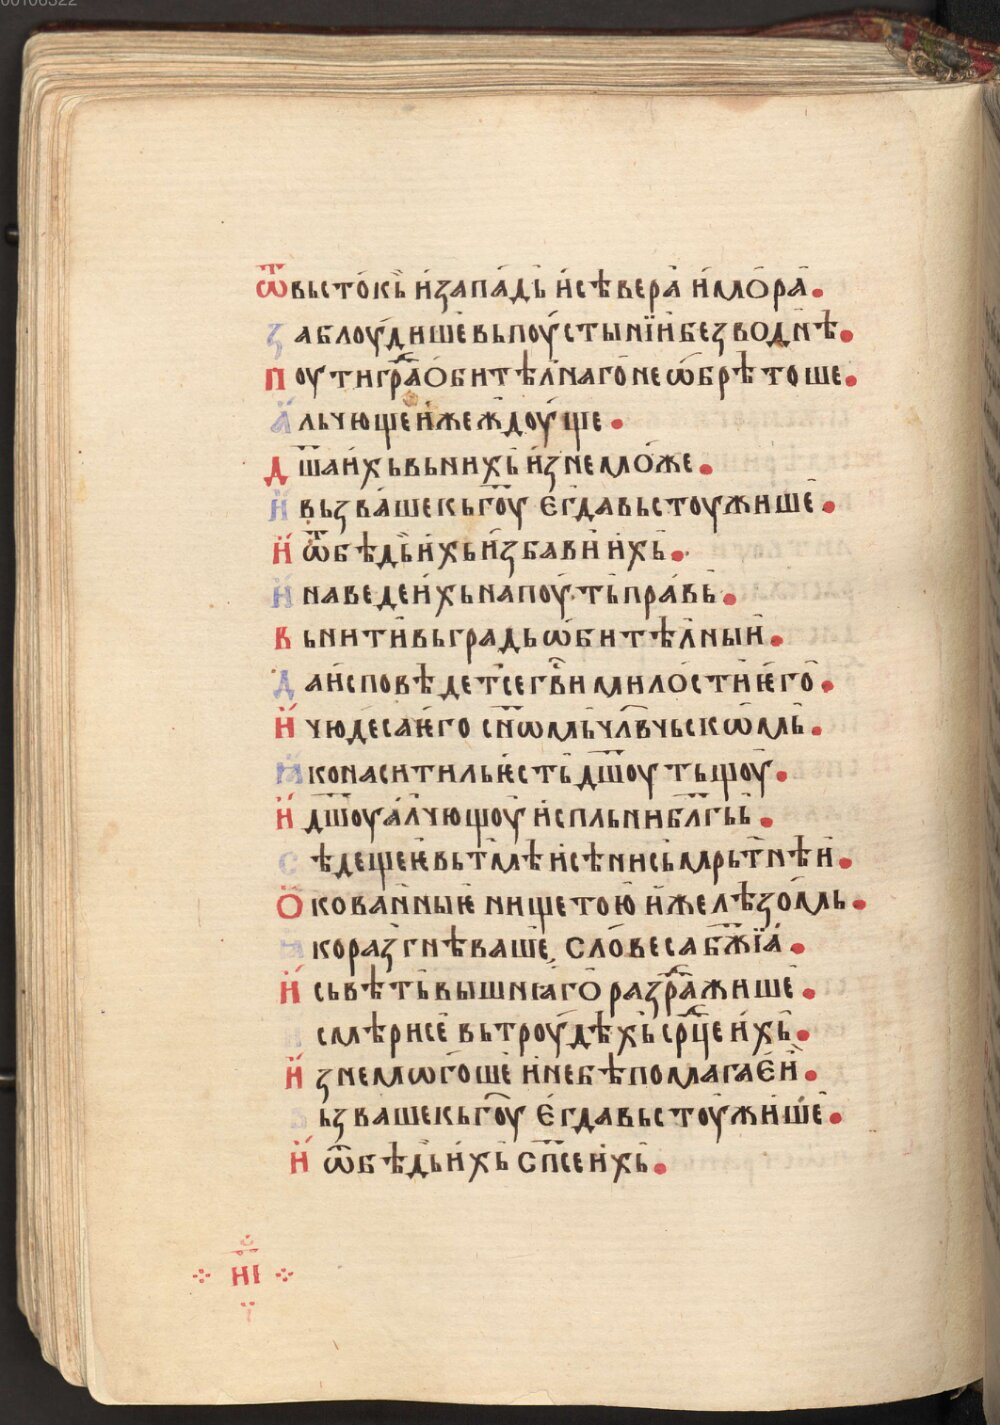 00106322
ѿвьсто́кь и҆запа́дь и҆сѣвера и҆мо́ра.
заблоу́дише вьпоу́стыни́и бе́зво́днѣ.
поути гра́ обитѣлна́го не ѡ҆брѣтоше.
а҆льчюще и҆жеждоу́ще.
дш҃а и҆хь вьнихь и҆знемо́же.
и҆ вьзва́ше кьгоу҃ е҆гда вьстоужише.
и҆ ѿбѣдьи҆хь и҆збави и҆хь.
и҆ наведе и҆хь напоу́ть пра́вь.
вьнити вьградь ѡ҆битѣлныи.
да и҆сповѣдетсе гв҃и милости ѥ҆го.
и҆ чюдеса ѥ҆го сн҃ѡмь члв҃чьскѡмь.
ꙗ҆ко наситиль ѥ҆сть дш҃оу тьщоу.
и҆ дш҃оу а҆лчющоу и҆спльни бл҃гь.
сѣдещеѥ вьтмѣ и҆сѣни сьмрьтнѣи.
ѻ҆кованныѥ нищетою и҆желѣзомь.
ꙗ҆ко разгнѣваше словеса бж҃їа.
и҆ сьвѣть вышнꙗго раздражише.
и҆ смѣрисе вьтроудѣхь срц҃е и҆хь.
и҆ знемѡгоше и҆небѣ помагаѥи.
вьзваше кьгоу҃ е҆гда вьстоужише.
и҆ ѿбѣдьи҆хь сп҃се и҆хь.
НІ